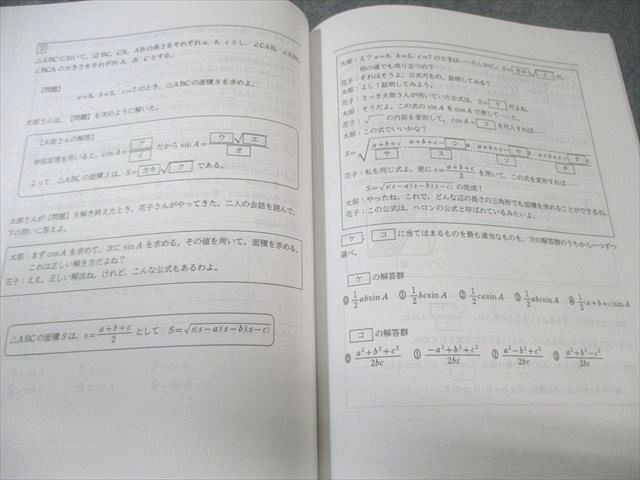 3
△ABCにおいて，辺BC，CA，ABの長さをそれぞれa，b，cとし，∠CAB，∠ABC，
∠BCAの大きさをそれぞれA，B，Cとする。
【問題】
a=6，b=5，c=7のとき，△ABCの面積Sを求めよ。
太郎さんは，【問題】を次のように解いた。
【太郎さんの解答】
余弦定理を用いると，cosA= ア / イ だからsinA= ウ √ エ / オ
よって △ABCの面積は，S= カキ √ ク である。
太郎さんが【問題】を解き終えたとき，花子さんがやってきた。二人の会話を読んで，
下の問いに答えよ。
太郎：まずcosAを求めて，次にsinAを求める。その値を用いて，面積を求める。
これは正しい解き方だよね？
花子：ええ。正しい解法ね。けれど，こんな公式もあるわよ。
△ABCの面積Sは，s= a+b+c / 2 として S=√s(s−a)(s−b)(s−c)
太郎：え？a=6，b=5，c=7のときは……たしかに，S= カキ √ ク だ。
他の値でも成り立つの？
花子：それはそうよ。公式だもの。証明してみる？
太郎：よし！証明してみよう。
花子：さっき太郎さんが用いていた公式は，S= ケ だよね。
太郎：そうだよ。この式のsinAをcosAで表して……と。
花子：√ の内部を変形して，cosA= コ を代入すれば……
太郎：この式でいいかな？
S=√ a+b+c / サ ・ a+b+c− シ / ス ・ a+b+c− セ / ソ ・ a+b+c− タ / チ
花子：私も同じ式よ。更にs= a+b+c / 2 を用いて，この式を変形すれば……
S=√s(s−a)(s−b)(s−c) の完成！
太郎：やったね。これで，どんな辺の長さの三角形でも面積を求めることができるね。
花子：この公式は，ヘロンの公式と呼ばれているみたいよ。
ケ ， コ に当てはまるものを最も適当なものを，次の解答群のうちから一つずつ
選べ。
ケ の解答群
⓪ 1/2 absinA ① 1/2 bcsinA ② 1/2 casinA ③ 1/2 abcsinA ④ 1/2 (a+b+c)sinA
コ の解答群
⓪ a²+b²+c² / 2bc ① −a²+b²+c² / 2bc ② a²−b²+c² / 2bc ③ a²+b²−c² / 2bc